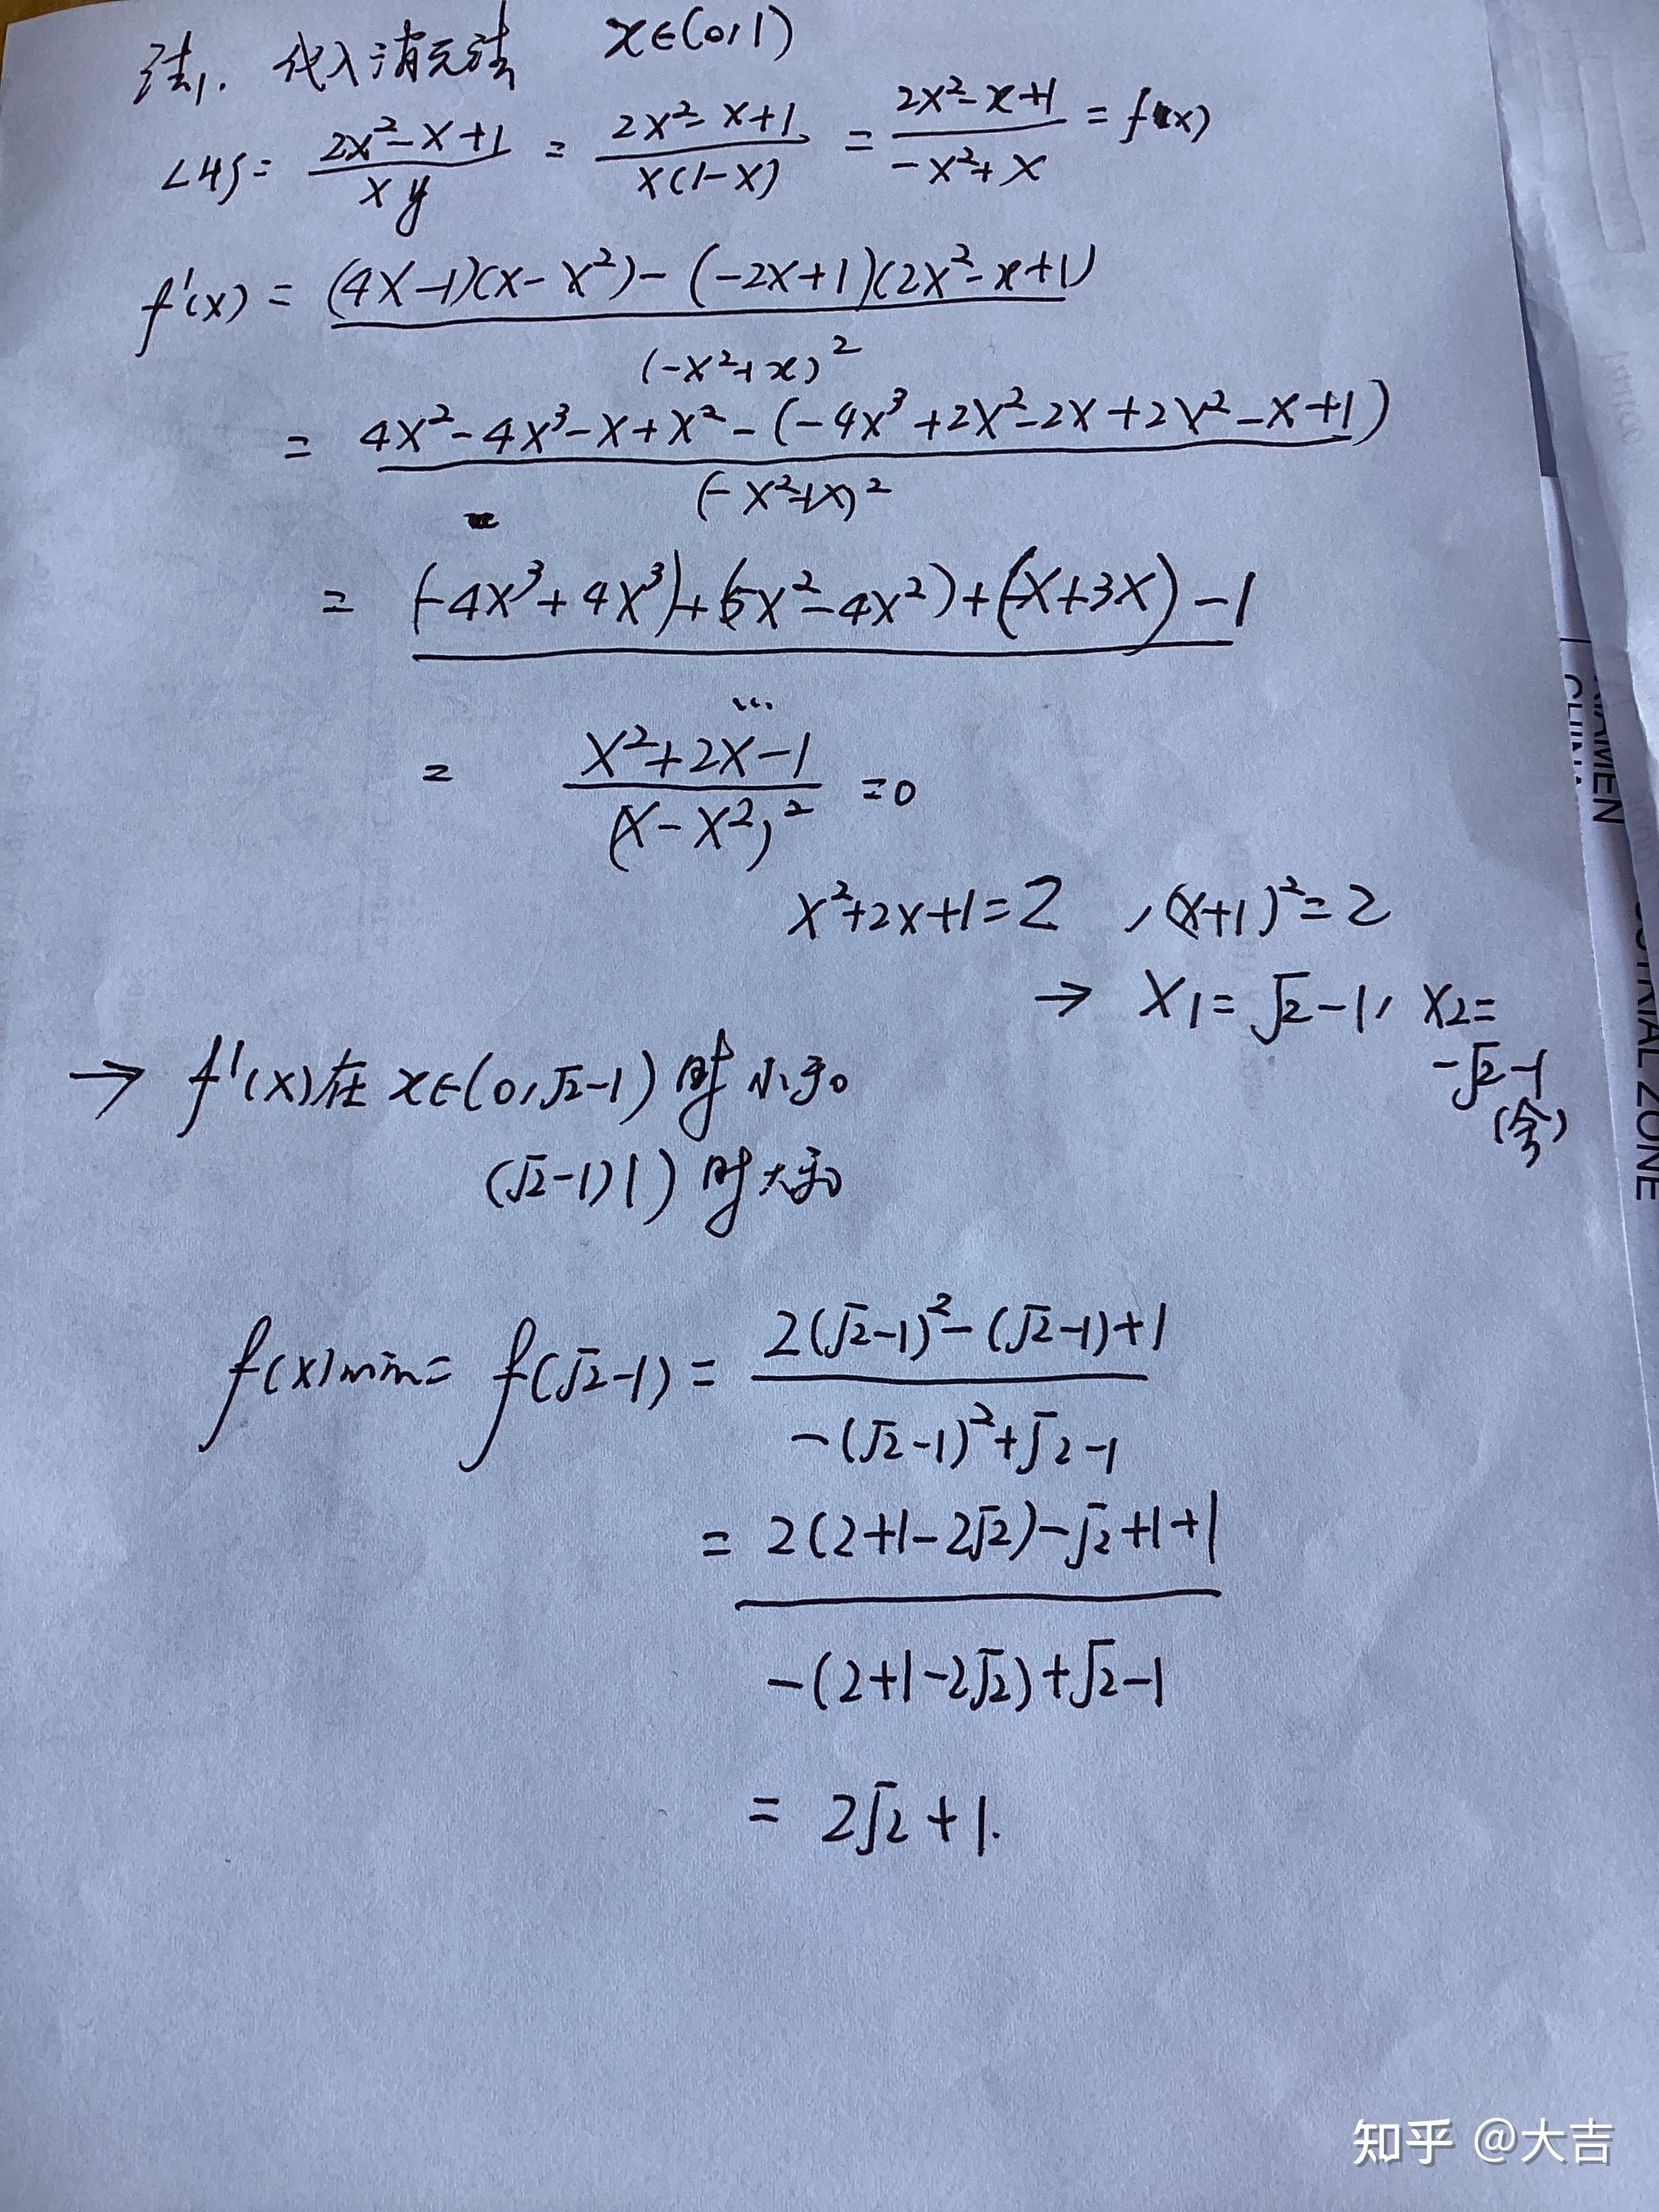 法1. 代入消元法 x∈(0,1)
LHS= (2x²-x+1)/(xy) = (2x²-x+1)/(x(1-x)) = (2x²-x+1)/(-x²+x) = f(x)
f'(x) = ((4x-1)(x-x²)-(-2x+1)(2x²-x+1))/(-x²+x)²
= (4x²-4x³-x+x²-(-4x³+2x²-2x+2x²-x+1))/(-x²+x)²
= ((-4x³+4x³)+(5x²-4x²)+(-x+3x)-1)/...
= (x²+2x-1)/(x-x²)² =0
x²+2x+1=2 , (x+1)²=2
→ x1=√2-1, x2=
-√2-1
(舍)
→ f'(x)在 x∈(0,√2-1) 时小于0
(√2-1,1) 时大于0
f(x)min= f(√2-1) = (2(√2-1)²-(√2-1)+1)/(-(√2-1)²+√2-1)
= (2(2+1-2√2)-√2+1+1)/(-(2+1-2√2)+√2-1)
= 2√2+1.
XIAMEN
CHINA
ZONE
知乎 @大吉